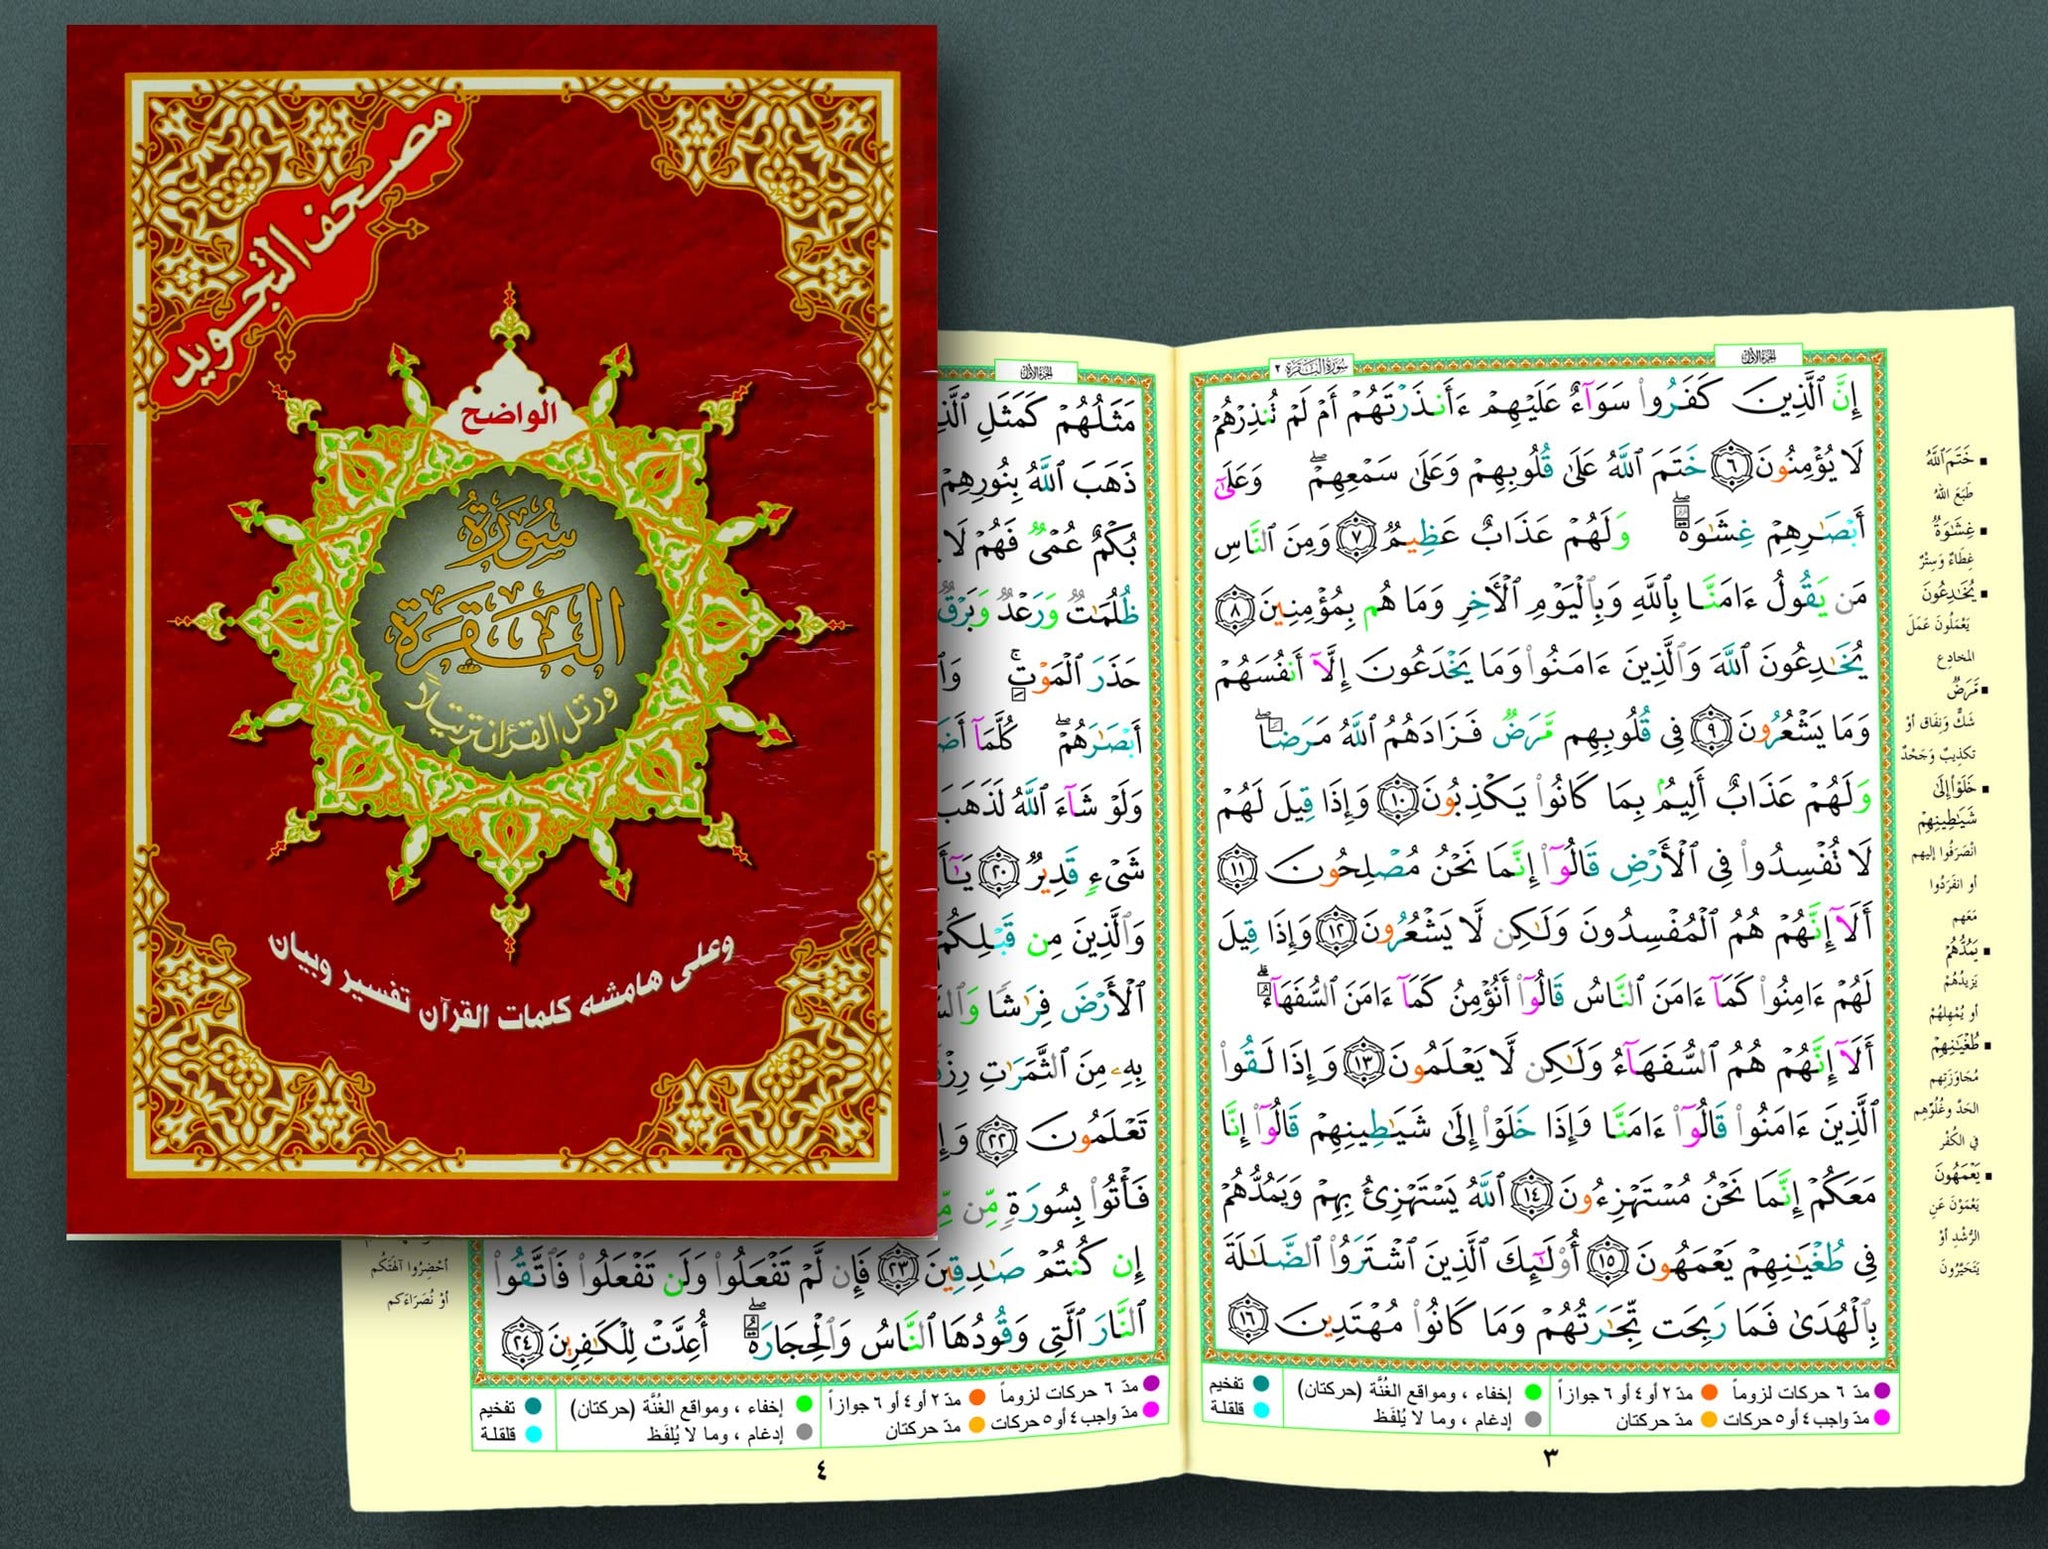 مصحف التجويد
الواضح
سُورَةُ
البَقَرَة
ورتل القرءان ترتيلاً
وعلى هامشه كلمات القرآن تفسير وبيان
الجزء الأول
سُورَةُ البَقَرَةِ ٢
إِنَّ ٱلَّذِينَ كَفَرُوا۟ سَوَآءٌ عَلَيْهِمْ ءَأَنذَرْتَهُمْ أَمْ لَمْ تُنذِرْهُمْ
لَا يُؤْمِنُونَ ٦ خَتَمَ ٱللَّهُ عَلَىٰ قُلُوبِهِمْ وَعَلَىٰ سَمْعِهِمْ ۖ وَعَلَىٰٓ
أَبْصَـٰرِهِمْ غِشَـٰوَةٌ ۖ وَلَهُمْ عَذَابٌ عَظِيمٌ ٧ وَمِنَ ٱلنَّاسِ
مَن يَقُولُ ءَامَنَّا بِٱللَّهِ وَبِٱلْيَوْمِ ٱلْـَٔاخِرِ وَمَا هُم بِمُؤْمِنِينَ ٨
يُخَـٰدِعُونَ ٱللَّهَ وَٱلَّذِينَ ءَامَنُوا۟ وَمَا يَخْدَعُونَ إِلَّآ أَنفُسَهُمْ
وَمَا يَشْعُرُونَ ٩ فِى قُلُوبِهِم مَّرَضٌ فَزَادَهُمُ ٱللَّهُ مَرَضًا ۖ
وَلَهُمْ عَذَابٌ أَلِيمٌۢ بِمَا كَانُوا۟ يَكْذِبُونَ ١٠ وَإِذَا قِيلَ لَهُمْ
لَا تُفْسِدُوا۟ فِى ٱلْأَرْضِ قَالُوٓا۟ إِنَّمَا نَحْنُ مُصْلِحُونَ ١١
أَلَآ إِنَّهُمْ هُمُ ٱلْمُفْسِدُونَ وَلَـٰكِن لَّا يَشْعُرُونَ ١٢ وَإِذَا قِيلَ
لَهُمْ ءَامِنُوا۟ كَمَآ ءَامَنَ ٱلنَّاسُ قَالُوٓا۟ أَنُؤْمِنُ كَمَآ ءَامَنَ ٱلسُّفَهَآءُ ۗ
أَلَآ إِنَّهُمْ هُمُ ٱلسُّفَهَآءُ وَلَـٰكِن لَّا يَعْلَمُونَ ١٣ وَإِذَا لَقُوا۟
ٱلَّذِينَ ءَامَنُوا۟ قَالُوٓا۟ ءَامَنَّا وَإِذَا خَلَوْا۟ إِلَىٰ شَيَـٰطِينِهِمْ قَالُوٓا۟ إِنَّا
مَعَكُمْ إِنَّمَا نَحْنُ مُسْتَهْزِءُونَ ١٤ ٱللَّهُ يَسْتَهْزِئُ بِهِمْ وَيَمُدُّهُمْ
فِى طُغْيَـٰنِهِمْ يَعْمَهُونَ ١٥ أُو۟لَـٰٓئِكَ ٱلَّذِينَ ٱشْتَرَوُا۟ ٱلضَّلَـٰلَةَ
بِٱلْهُدَىٰ فَمَا رَبِحَت تِّجَـٰرَتُهُمْ وَمَا كَانُوا۟ مُهْتَدِينَ ١٦
خَتَمَ ٱللَّهُ
طَبَعَ اللهُ
غِشَـٰوَةٌ
غِطَاءٌ وَسِتْرٌ
يُخَـٰدِعُونَ
يَعْمَلُونَ عَمَلَ
المخادِع
مَّرَضٌ
شَكٌّ وَنِفَاق أوْ
تكذِيبٌ وَجَحْدٌ
خَلَوْا۟ إِلَىٰ
شَيَـٰطِينِهِمْ
انْصَرَفُوا إليهم
أو انفَرَدُوا
مَعَهم
يَمُدُّهُمْ
يَزيدُهُمْ
أو يُمْهِلهُمْ
طُغْيَـٰنِهِمْ
مُجَاوَزَتِهم
الحَدَّ وغُلُوِّهِم
في الكُفْر
يَعْمَهُونَ
يَعْمَوْنَ عَنِ
الرُّشْدِ أوْ
يَتَحَيَّرُونَ
مدّ ٦ حركات لزوماً مدّ ٢ أو ٤ أو ٦ جوازاً إخفاء ، ومواقع الغُنَّة (حركتان) تفخيم
مدّ واجب ٤ أو ٥ حركات مدّ حركتان إدغام ، وما لا يُلفَظ قلقلة
٣
الجزء الأول
مَثَلُهُمْ كَمَثَلِ
ذَهَبَ ٱللَّهُ بِنُورِهِمْ
بُكْمٌ عُمْىٌ فَهُمْ لَا
ظُلُمَـٰتٌ وَرَعْدٌ وَبَرْقٌ
حَذَرَ ٱلْمَوْتِ ۚ
أَبْصَـٰرَهُمْ ۖ كُلَّمَآ
وَلَوْ شَآءَ ٱللَّهُ لَذَهَبَ
شَىْءٍ قَدِيرٌ ٢٠
وَٱلَّذِينَ مِن قَبْلِكُمْ
ٱلْأَرْضَ فِرَٰشًا
بِهِۦ مِنَ ٱلثَّمَرَٰتِ
تَعْلَمُونَ ٢٢
فَأْتُوا۟ بِسُورَةٍ مِّن
إِن كُنتُمْ صَـٰدِقِينَ ٢٣ فَإِن لَّمْ تَفْعَلُوا۟ وَلَن تَفْعَلُوا۟ فَٱتَّقُوا۟
ٱلنَّارَ ٱلَّتِى وَقُودُهَا ٱلنَّاسُ وَٱلْحِجَارَةُ ۖ أُعِدَّتْ لِلْكَـٰفِرِينَ ٢٤
أحْضِرُوا آلهتَكُم
أوْ نُصَرَاءَكم
مدّ ٦ حركات لزوماً مدّ ٢ أو ٤ أو ٦ جوازاً إخفاء ، ومواقع الغُنَّة (حركتان) تفخيم
مدّ واجب ٤ أو ٥ حركات مدّ حركتان إدغام ، وما لا يُلفَظ قلقلة
٤